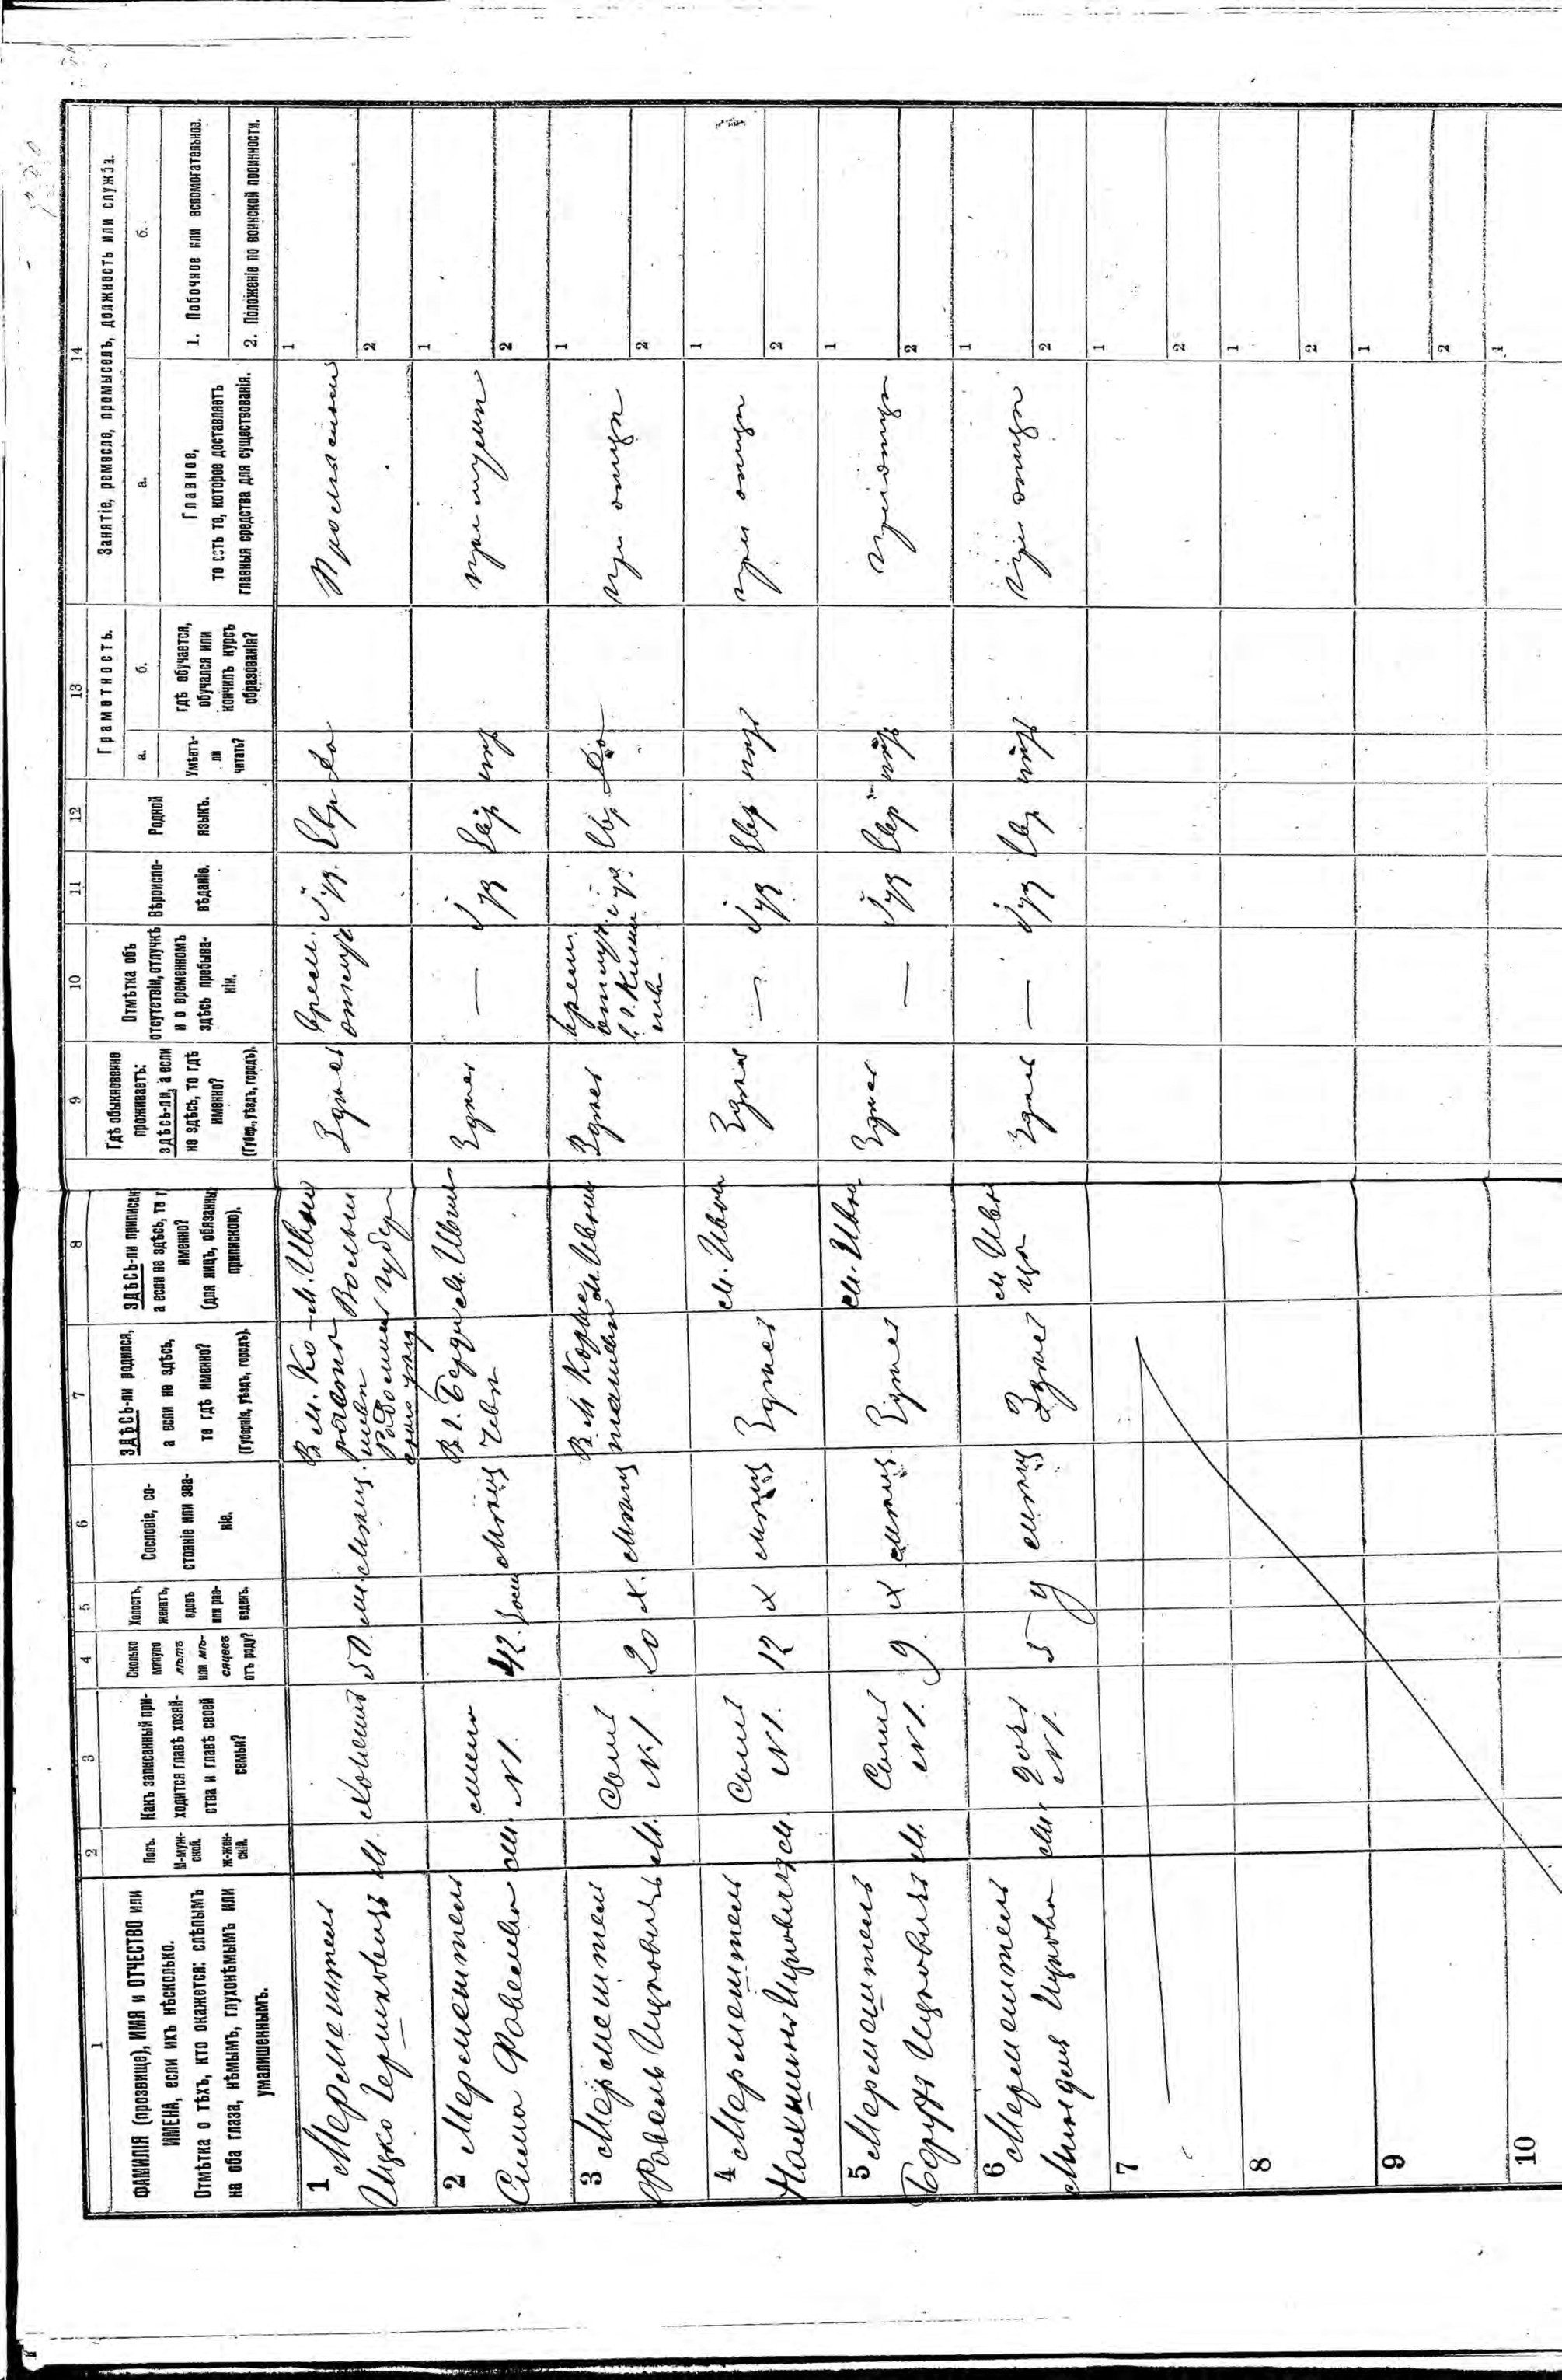 1
ФАМИЛІЯ (прозвище), ИМЯ и ОТЧЕСТВО или
ИМЕНА, если ихъ нѣсколько.
Отмѣтка о тѣхъ, кто окажется: слѣпымъ
на оба глаза, нѣмымъ, глухонѣмымъ или
умалишеннымъ.
2
Полъ.
М-муж-
ской.
ж-жен-
скій.
3
Какъ записанный при-
ходится главѣ хозяй-
ства и главѣ своей
семьи?
4
Сколько
минуло
лѣтъ
или мѣ-
сяцевъ
отъ роду?
5
Холостъ,
женатъ,
вдовъ
или раз-
веденъ.
6
Сословіе, со-
стояніе или зва-
ніе.
7
ЗДѢСЬ-ли родился,
а если не здѣсь,
то гдѣ именно?
(Губернія, уѣздъ, городъ).
8
ЗДѢСЬ-ли приписан
а если не здѣсь, то г
именно?
(для лицъ, обязанны
припискою).
9
Гдѣ обыкновенно
проживаетъ:
ЗДѢСЬ-ЛИ, а если
не здѣсь, то гдѣ
именно?
(Губер., уѣздъ, городъ).
10
Отмѣтка объ
отсутствіи, отлучкѣ
и о временномъ
здѣсь пребыва-
ніи.
11
Вѣроиспо-
вѣданіе.
12
Родной
языкъ.
13
Грамотность.
а.
Умѣетъ-
ли
читать?
б.
гдѣ обучается,
обучался или
кончилъ курсъ
образованія?
14
Занятіе, ремесло, промыселъ, должность или служба.
а.
Главное,
то есть то, которое доставляетъ
главныя средства для существованія.
б.
1. Побочное или вспомогательное.
2. Положеніе по воинской повинности.
1 Мермештель
Ицко Гершковичъ
м.
Хозяинъ
50
мѣщ.
В м. Ко-
м. Ивни
Волын
губер
Здѣсь
Врем.
отлуч
Іуд.
Евр
Да
1
2
2 Мермештель
Сима Фавелевна
жена
№ 1.
42.
мѣщ
В г. Берди
чевѣ
м. Ивни
Здѣсь
—
Іуд
Евр
нѣт
при мужѣ
1
2
3 Мермештель
Фавель Ицковичъ
м.
Сынъ
№ 1
20
х.
мѣщ
м. Ивни
Здѣсь
Врем.
отлуч.
Іуд
Евр
Да
при отцѣ
1
2
4 Мермештель
Ицковичъ
м
Сынъ
№ 1.
12
х
мѣщ
Здѣсь
м. Ивни
Здѣсь
—
Іуд
Евр
нѣт
при отцѣ
1
2
5 Мермештель
Борухъ Ицковичъ
м.
Сынъ
№ 1.
9.
х
мѣщ
Здѣсь
м. Ивни
Здѣсь
—
Іуд
Евр
нѣт
при отцѣ
1
2
6 Мермештель
Ицковна
дочь
№ 1.
5
мѣщ
Здѣсь
Здѣсь
—
Іуд
Евр
нѣт
при отцѣ
1
2
7
1
2
8
1
2
9
1
2
10
1